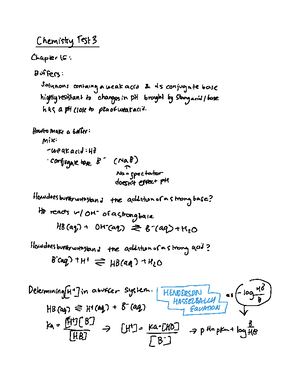 Chemistry Test 3
Chapter 15:
Buffers:
Solutions containing a weak acid & its conjugate base
highly resistant to changes in pH brought by strong acid/base
has a pH close to pka of weak acid.
How to make a buffer:
Mix:
- weak acid: HB
- conjugate base B⁻ (NaB)
Na = spectator
doesn't effect pH
How does buffer withstand the addition of a strong base?
HB reacts w/ OH⁻ of a strong base
HB(aq) + OH⁻(aq) ⇌ B⁻(aq) + H₂O
How does buffer withstand the addition of a strong acid?
B⁻(aq) + H⁺ ⇌ HB(aq) + H₂O
Determining [H⁺] in a buffer system.
HENDERSON HASSELBALCH EQUATION
or
-log HB/B
HB(aq) ⇌ H⁺(aq) + B⁻(aq)
Ka = [H⁺][B⁻]/[HB] → [H⁺] = Ka×[HB]/[B⁻] → pH = pKa + log B/HB